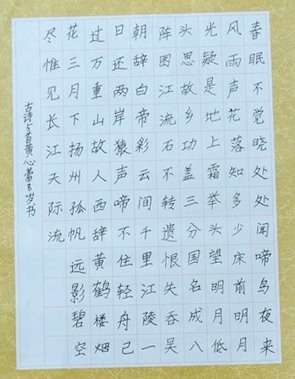 春眠不觉晓处处闻啼鸟夜来
风雨声花落知多少床前明月
光疑是地上霜举头望明月低
头思故乡功盖三分国名成八
阵图江流石不转遗恨失吞吴
朝辞白帝彩云间千里江陵一
日还两岸猿声啼不住轻舟已
过万重山故人西辞黄鹤楼烟
花三月下扬州孤帆远影碧空
尽惟见长江天际流
古诗六首黄心蕾8岁书